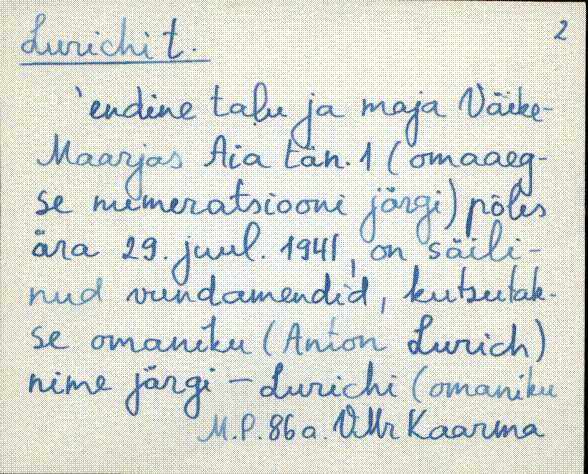 Lurichi t. 2
'endine talu ja maja Väike-
Maarjas Aia tän. 1 (omaaeg-
se numeratsiooni järgi) põles
ära 29. juul. 1941, on säili-
nud vundamendid, kutsutak-
se omaniku (Anton Lurich)
nime järgi – Lurichi (omaniku
M.P. 86 a. VMr Kaarma